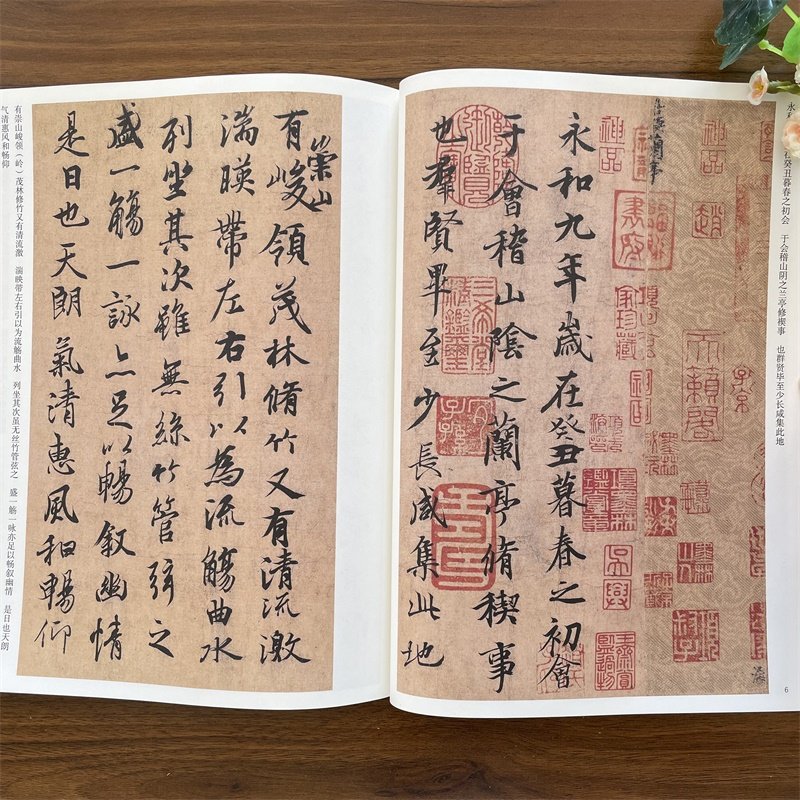 永
癸丑暮春之初会 于会稽山阴之兰亭修禊事 也群贤毕至少长咸集此地
神品
永和九年歲在癸丑暮春之初會
于會稽山陰之蘭亭脩稧事
也羣賢畢至少長咸集此地
6
有崇山峻領茂林脩竹又有清流激
湍暎帶左右引以為流觴曲水
列坐其次雖無絲竹管弦之
盛一觴一詠亦足以暢叙幽情
是日也天朗氣清惠風和暢仰
有崇山峻领（岭）茂林修竹又有清流激 湍映带左右引以为流觞曲水 列坐其次虽无丝竹管弦之 盛一觞一咏亦足以畅叙幽情 是日也天朗
气清惠风和畅仰